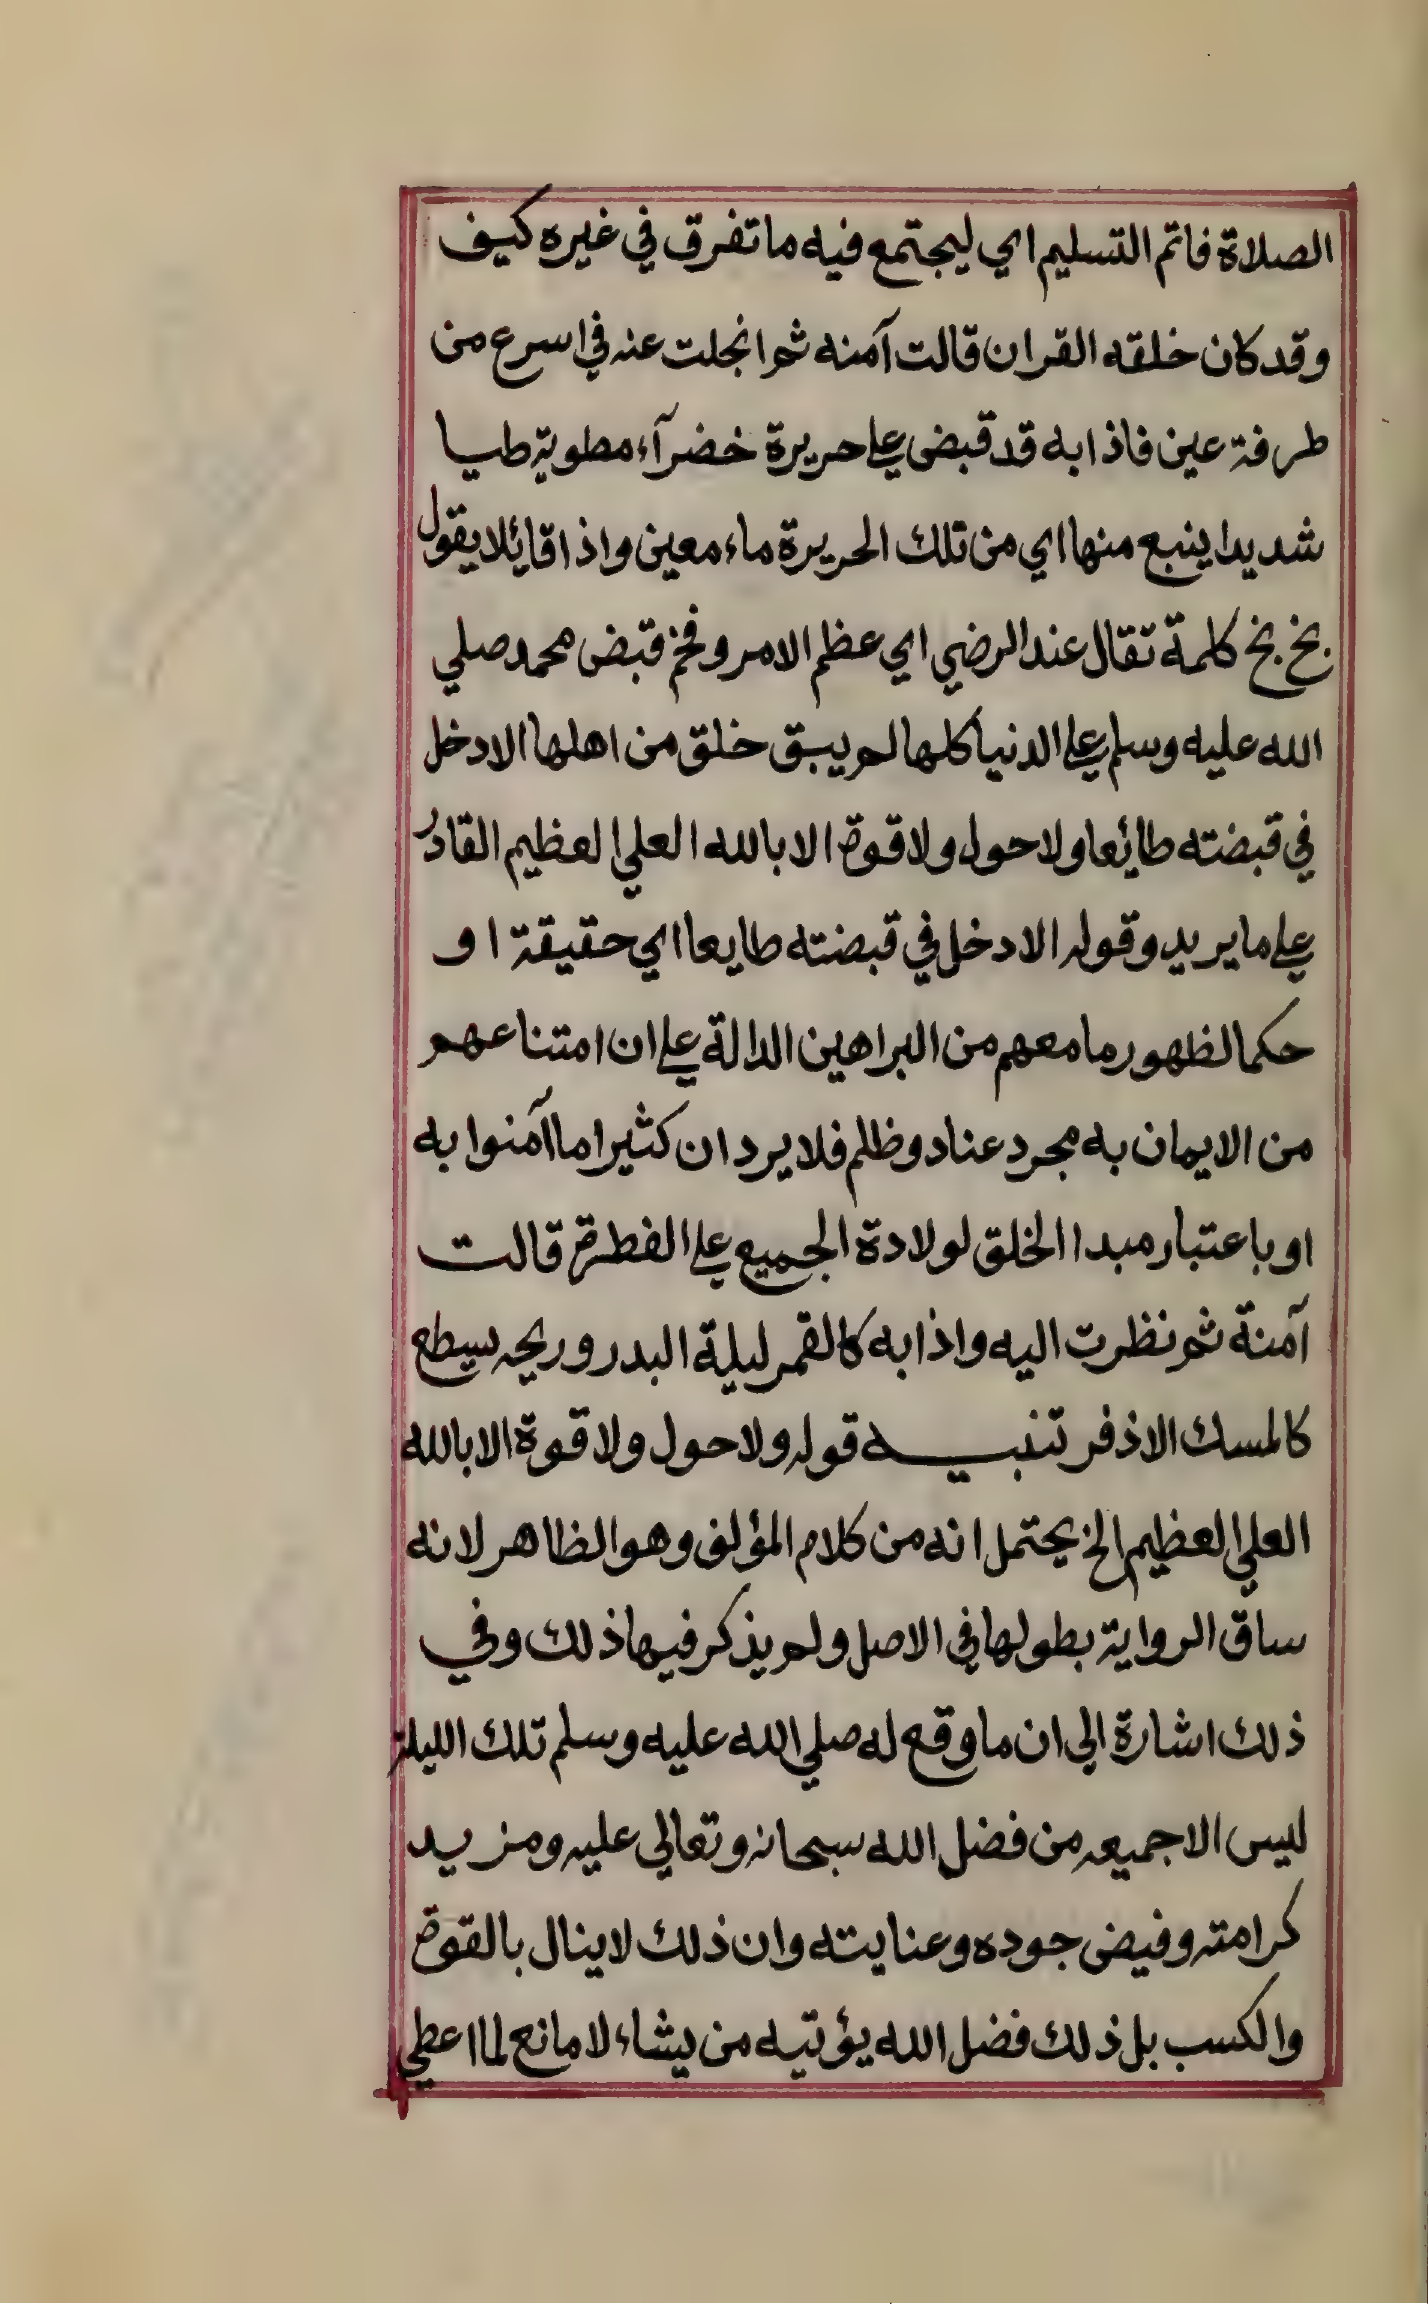 الصلاة فاتم التسليم اي ليجتمع فيه ما تفرق في غيره كيف
وقد كان خلقه القران قالت آمنه ثم انجلت عنه في اسرع من
طرفة عين فاذا به قد قبض علي حريرة خضرآء مطوية طيا
شديدا ينبع منها اي من تلك الحريرة ماء معين واذا قائلا يقول
بخ بخ كلمة تقال عند الرضي اي عظم الامر وفخم قبض محمد صلي
الله عليه وسلم علي الدنيا كلها لم يبق خلق من اهلها الا دخل
في قبضته طائعا ولا حول ولا قوة الا بالله العلي العظيم القادر
علي ما يريد وقوله الا دخل في قبضته طايعا اي حقيقة او
حكما لظهور ما معهم من البراهين الدالة علي ان امتناعهم
من الايمان به مجرد عناد وظلم فلا يرد ان كثيرا ما اآمنوا به
او باعتبار مبدا الخلق لولادة الجميع علي الفطرة قالت
آمنة ثم نظرت اليه واذا به كالقمر ليلة البدر وريحه سيطع
كالمسك الاذفر تنبيه قوله ولا حول ولا قوة الا بالله
العلي العظيم الخ يحتمل انه من كلام المؤلف وهو الظاهر لانه
ساق الرواية بطولها في الاصل ولم يذكر فيها ذلك وفي
ذلك اشارة الي ان ما وقع له صلي الله عليه وسلم تلك الليلة
ليس الا جميعه من فضل الله سبحانه وتعالي عليه ومزيد
كرامته وفيض جوده وعنايته وان ذلك لا ينال بالقوة
والكسب بل ذلك فضل الله يؤتيه من يشاء لا مانع لما اعطي